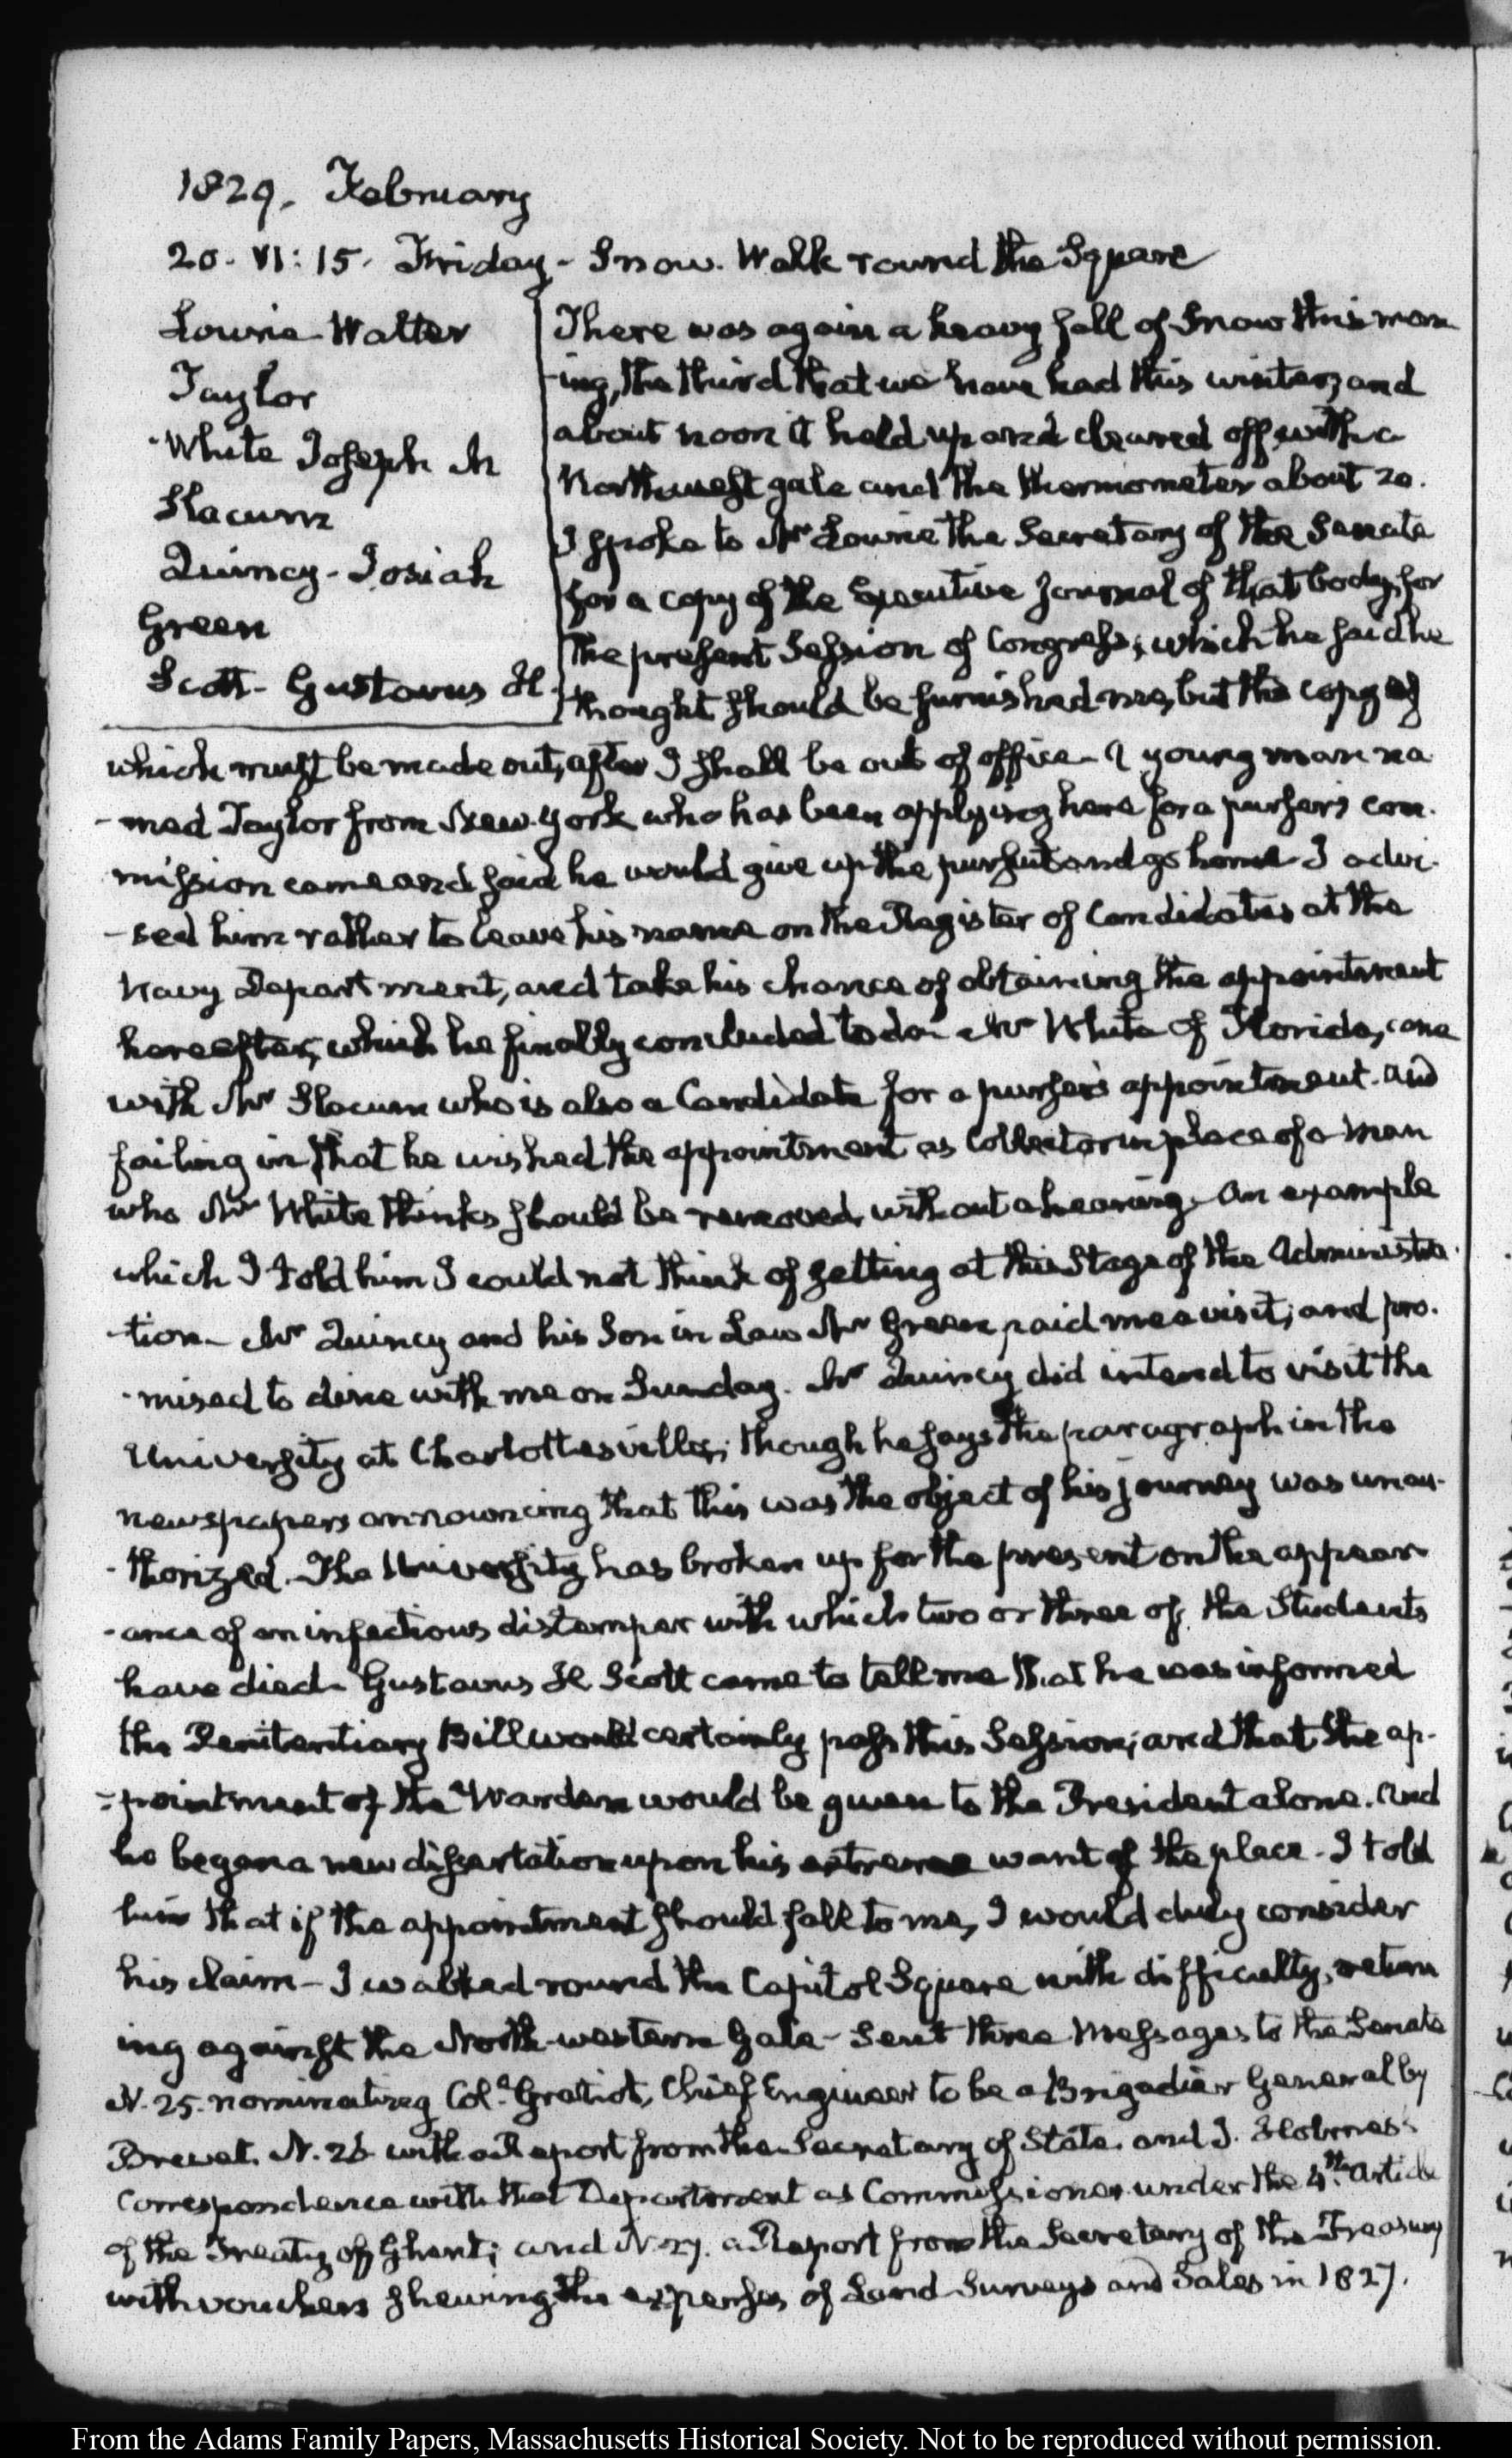 1829. February
20. VI:15. Friday - Snow. Walk round the Square
Lowrie Walter
Taylor
White Joseph M
Slacum
Quincy - Josiah
Green
Scott - Gustavus H.
There was again a heavy fall of Snow this morn
-ing, the third that we have had this winter; and
about noon it held up and cleared off with a
Northwest gale and the thermometer about 20.
I spoke to Mr Lowrie the Secretary of the Senate
for a copy of the Executive Journal of that body, for
the present Session of Congress; which he said he
thought should be furnished me, but the copy of
which must be made out, after I shall be out of office - A young man na
-med Taylor from New York who has been applying here for a purser's com-
mission came and said he would give up the pursuit and go home - I advi-
-sed him rather to leave his name on the Register of Candidates at the
Navy Department, and take his chance of obtaining the appointment
hereafter, which he finally concluded to do - Mr White of Florida, came
with Mr Slacum who is also a Candidate for a purser's appointment. and
failing in that he wished the appointment as Collector in place of a man
who Mr White thinks should be removed without a hearing - An example
which I told him I could not think of setting at this Stage of the Administra-
-tion - Mr Quincy and his Son in Law Mr Green paid me a visit, and pro-
-mised to dine with me on Sunday. Mr Quincy did intend to visit the
University at Charlottesville; though he says the paragraph in the
newspapers announcing that this was the object of his journey was unau-
-thorized. The University has broken up for the present on the appear
-ance of an infectious distemper with which two or three of the Students
have died - Gustavus H Scott came to tell me that he was informed
the Penitentiary Bill would certainly pass this Session; and that the ap-
-pointment of the Warden would be given to the President alone. And
he began a new dissertation upon his extreme want of the place - I told
him that if the appointment should fall to me, I would duly consider
his claim - I walked round the Capitol Square with difficulty, return
ing against the North-western Gale - Sent three Messages to the Senate
N. 25. nominating Col. Gratiot, Chief Engineer to be a Brigadier General by
Brevet. N. 26 with a Report from the Secretary of State. and J. Holmes's
Correspondence with that Department as Commissioner under the 4th Article
of the Treaty of Ghent; and N. 27. a Report from the Secretary of the Treasury
with vouchers shewing the expenses of Land Surveys and Sales in 1827.
From the Adams Family Papers, Massachusetts Historical Society. Not to be reproduced without permission.